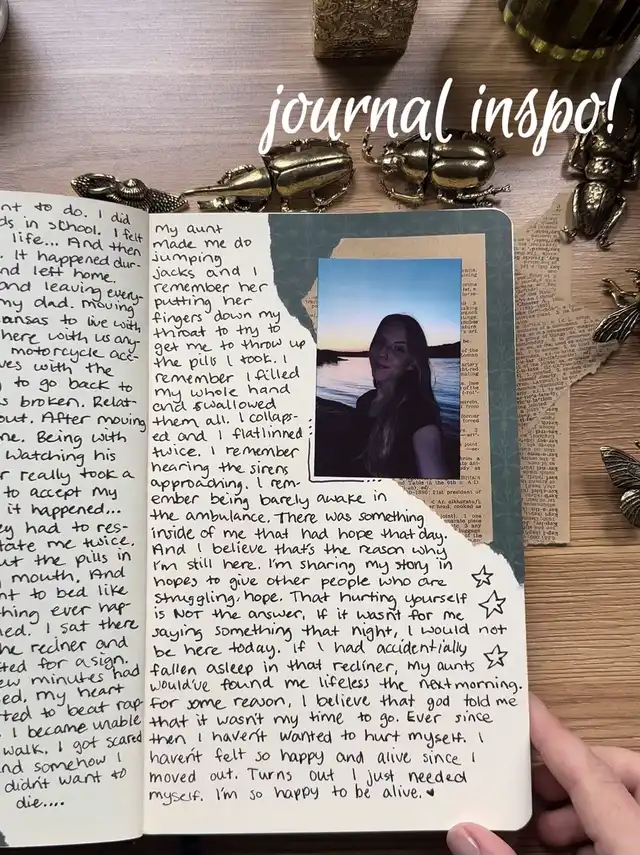 journal inspo!
nt to do. I did
ds in school. I felt
life... And then
. It happened dur-
nd left home.
and leaving every-
my dad. moving
ansas to live with
here with us any-
motorcycle acc-
ves with the
g to go back to
s broken. Relat-
out. After moving
ne. Being with
Watching his
r really took a
to accept my
it happened...
ey had to res-
tate me twice.
ut the pills in
mouth, And
nt to bed like
thing ever hap-
ned. I sat there
the recliner and
ted for a sign.
ew minutes had
ed, my heart
ted to beat rap
I became unable
walk. I got scared
and somehow I
didn't want to
die....
my aunt
made me do
jumping
jacks and I
remember her
putting her
fingers down my
throat to try to
get me to throw up
the pills I took. I
remember I filled
my whole hand
and swallowed
them all. I collaps-
ed and I flatlined
twice. I remember
hearing the sirens
approaching. I rem-
ember being barely awake in
the ambulance. There was something
inside of me that had hope that day.
And I believe that's the reason why
I'm still here. I'm sharing my story in
hopes to give other people who are
struggling. hope. That hurting yourself
is Not the answer. If it wasn't for me
saying something that night, I would not
be here today. If I had accidentially
fallen asleep in that recliner, my aunts
would've found me lifeless the next morning.
For some reason, I believe that god told me
that it wasn't my time to go. Ever since
then I haven't wanted to hurt myself. I
haven't felt so happy and alive since I
moved out. Turns out I just needed
myself. I'm so happy to be alive. ♥